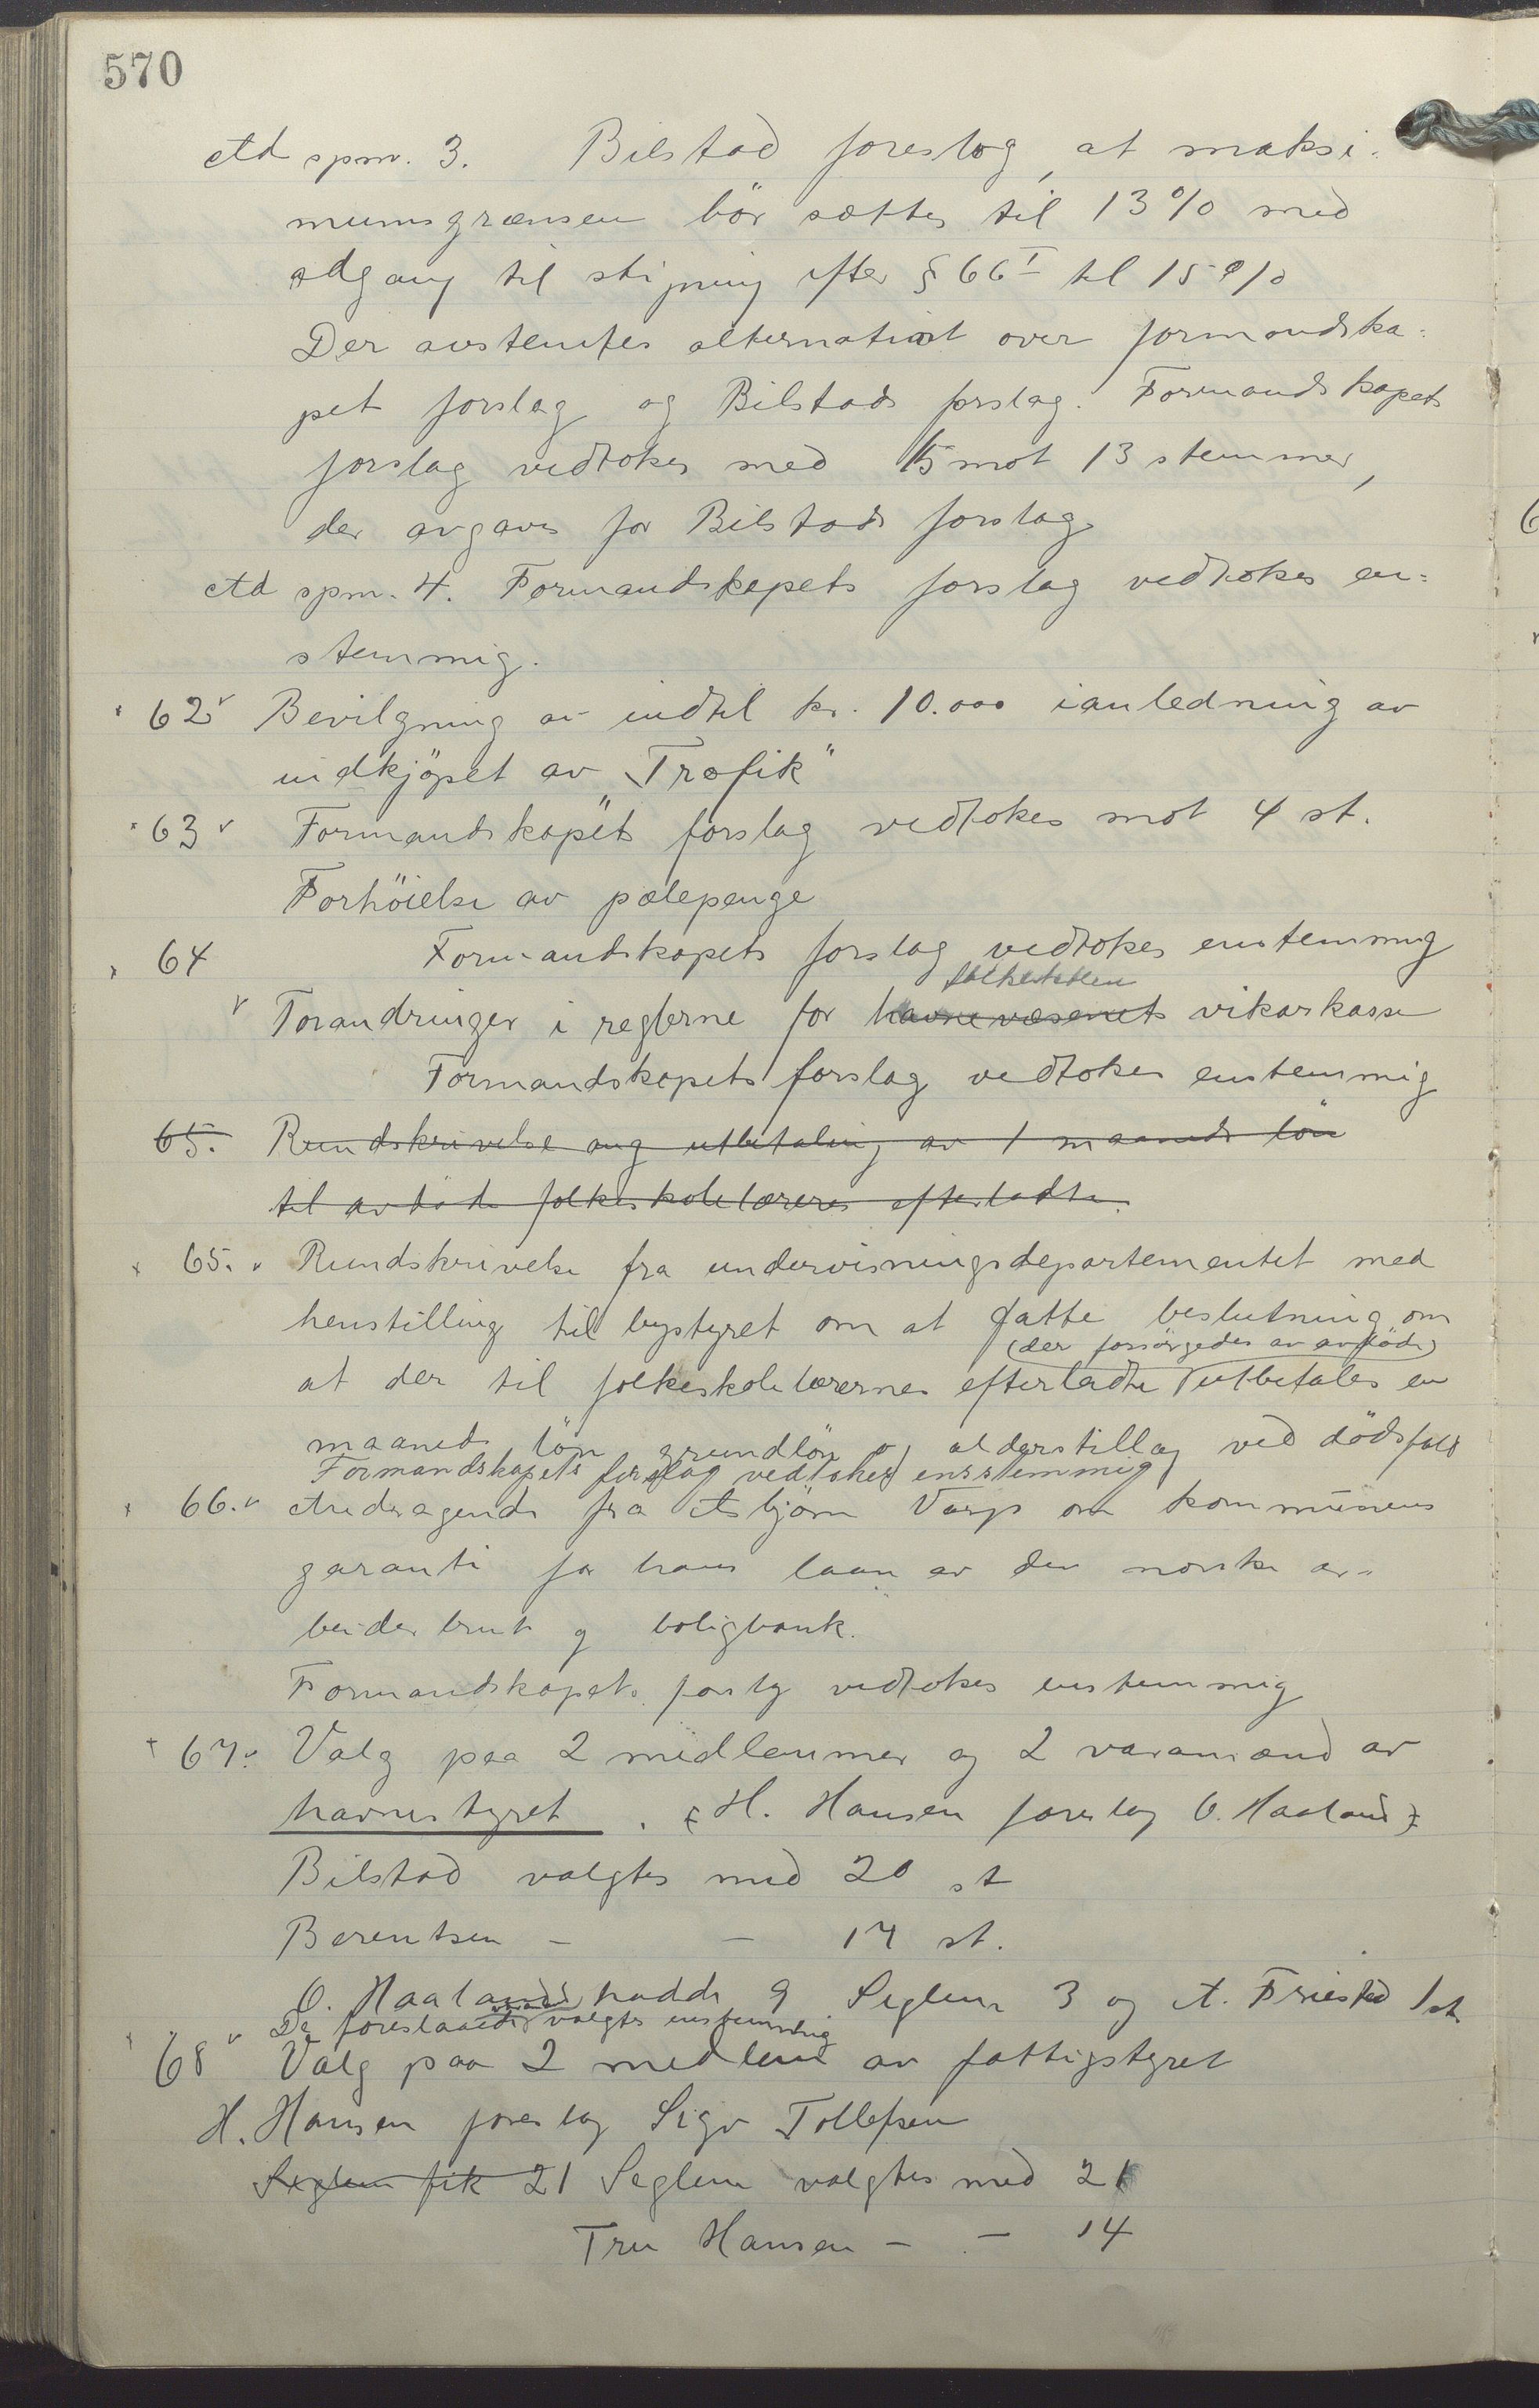 570
Ad spm. 3. Bilstad foreslog, at maksi-
mumsgrænsen bör sættes til 13% med
adgang til stigning efter § 66 I til 15%
Der avstemtes alternativt over formandska-
pet forslag og Bilstads forslag. Formandskapets
forslag vedtokes med 15 mot 13 stemmer,
der avgaves for Bilstads forslag
Ad spm. 4. Formandskapets forslag vedtokes en-
stemmig.
62 Bevilgning av indtil kr. 10.000 i anledning av
indkjöpet av "Trafik"
63 Formandskapets forslag vedtokes mot 4 st.
Forhöielse av pælepenge
64 Formandskapets forslag vedtokes enstemmig
Forandringer i reglerne for havnevæsenets vikarkasse
Formandskapets forslag vedtokes enstemmig
65. Rundskrivelse ang utbetaling av 1 maaneds lön
til avdöde folkeskolelæreres efterladte.
65. Rundskrivelse fra undervisningsdepartementet med
henstilling til bystyret om at fatte beslutning om
(der forsörgedes av avdöde)
at der til folkeskolelærernes efterladte utbetales en
maaneds lön grundlön og alderstillæg ved dödsfald
Formandskapets forslag vedtokes ensstemmig
66. Andragende fra Asbjörn Varp om kommunens
garanti for hans laan av den norske ar-
beiderbruk og boligbank.
Formandskapets forslg vedtokes enstemmig
67. Valg paa 2 medlemmer og 2 varamænd av
havnestyret. (H. Hansen foreslog O. Haaland)
Bilstad valgtes med 20 st
Berentsen - - 17 st.
O. Haaland hadde 9 Seglem 3 og A. Friestad 1 st
De foreslaaede valgtes enstemmig
68 Valg paa 2 medlem av fattigstyret
H. Hansen foreslog Sigv Tollefsen
Seglem fik 21 Seglem valgtes med 21
Fru Hansen - - 14